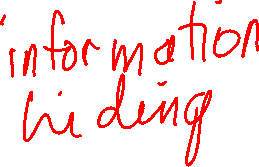 information
hiding